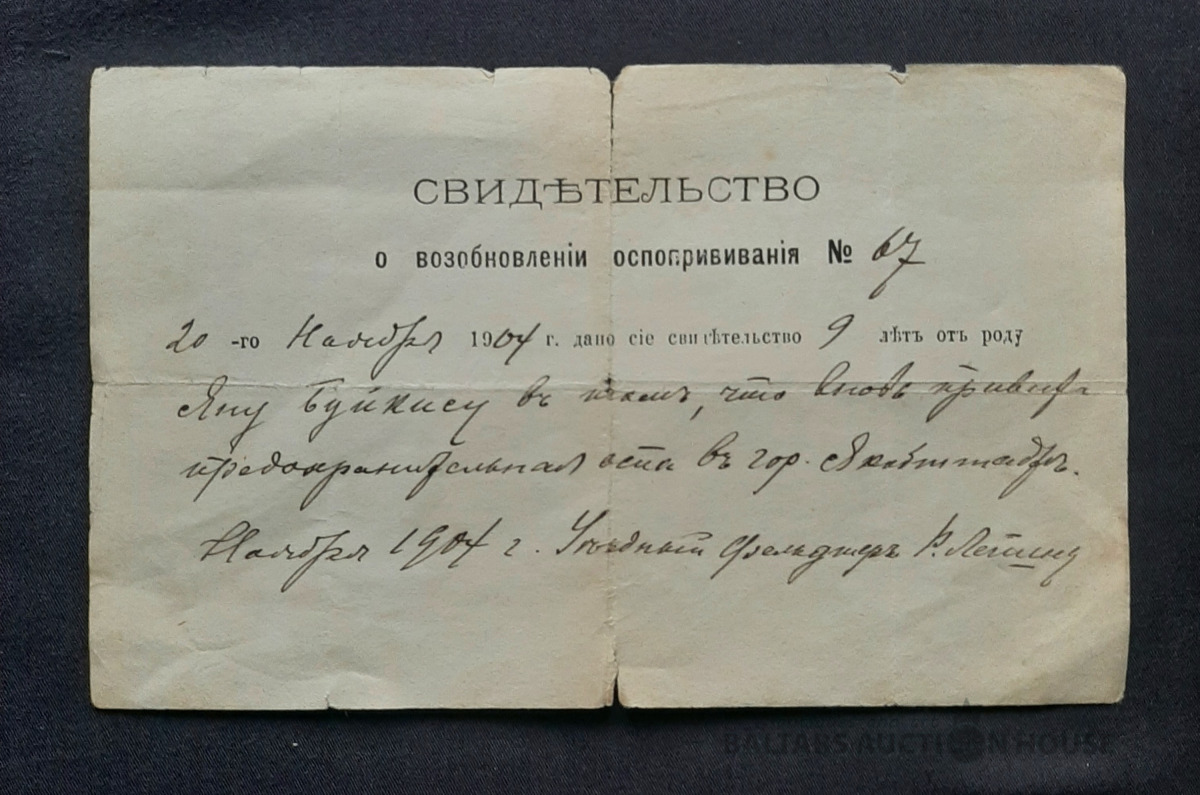 СВИДѢТЕЛЬСТВО
о возобновленіи оспопрививанія № 67
20 -го Ноября 1904 г. дано сіе свидѣтельство 9 лѣтъ отъ роду
Яну Буйкису въ томъ, что вновь привита
предохранительная оспа въ гор. Якобштадтѣ.
Ноября 1904 г. Уѣздный фельдшеръ
BALTABS AUCTION HOUSE